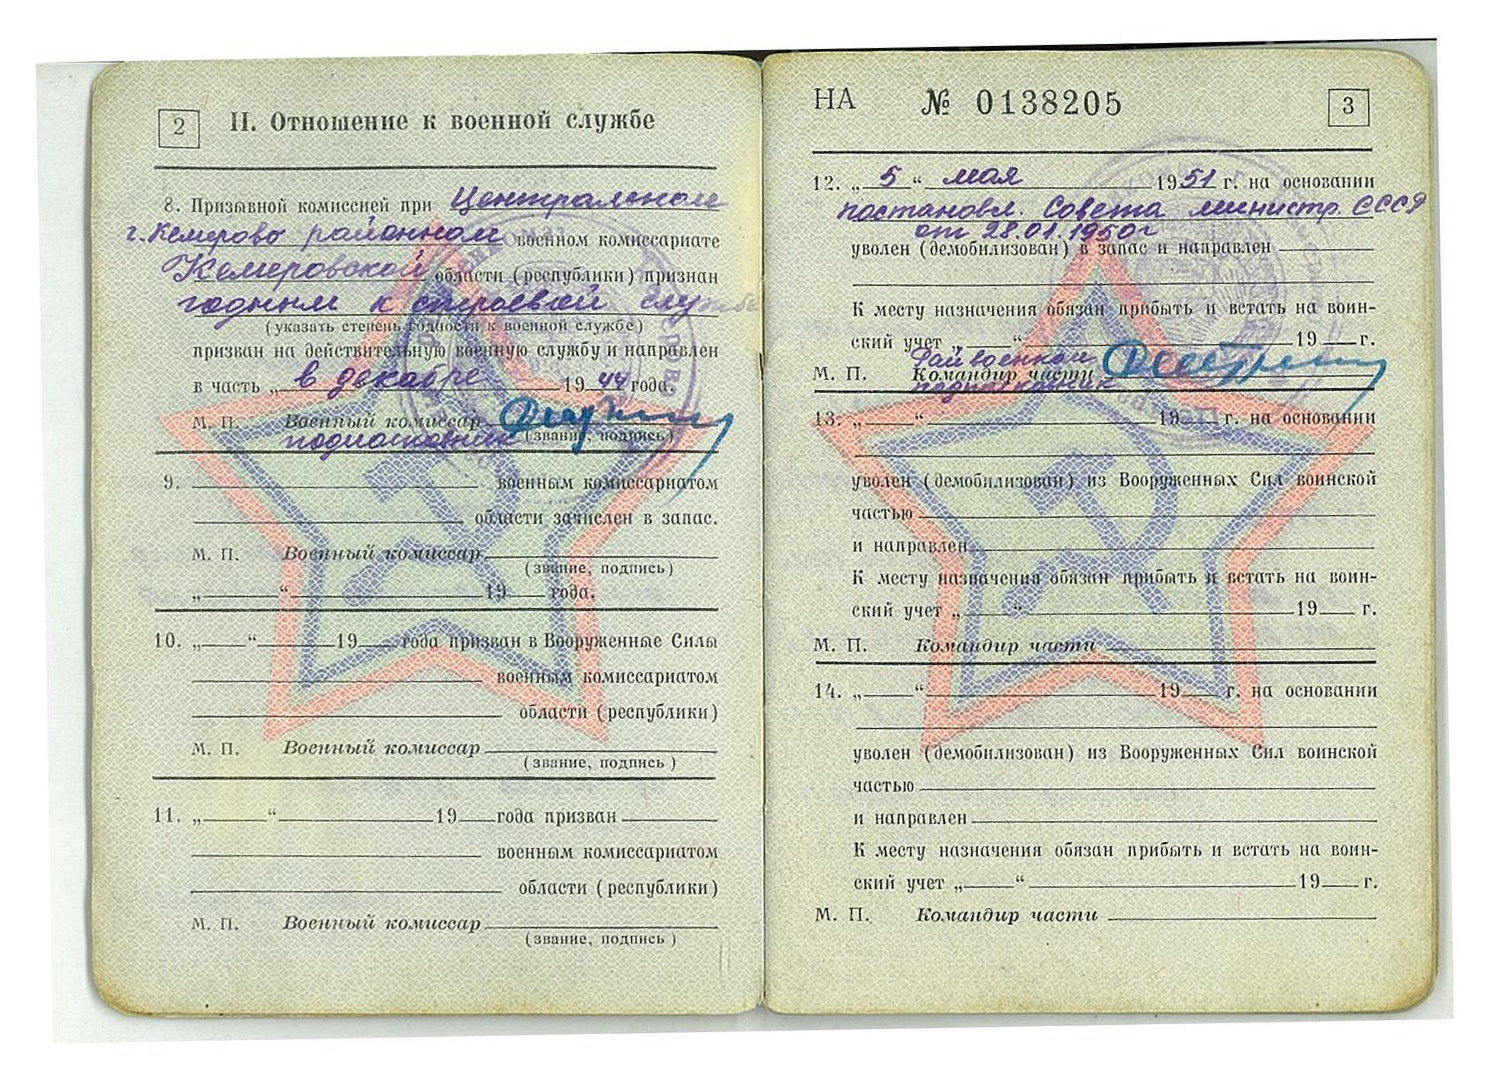 2
II. Отношение к военной службе
8. Призывной комиссией при Центральном
г. Кемерово районном военном комиссариате
Кемеровской области (республики) признан
годным к строевой службе
(указать степень годности к военной службе)
призван на действительную военную службу и направлен
в часть „ в декабре 19 44 года.
М. П. Военный комиссар
подполковник (звание, подпись)
9. военным комиссариатом
области зачислен в запас.
М. П. Военный комиссар
(звание, подпись)
„ “ 19 года.
10. „ “ 19 года призван в Вооруженные Силы
военным комиссариатом
области (республики)
М. П. Военный комиссар
(звание, подпись)
11. „ “ 19 года призван
военным комиссариатом
области (республики)
М. П. Военный комиссар
(звание, подпись)
НА № 0138205
3
12. „ 5 “ мая 1951 г. на основании
постановл. Совета министр. СССР
от 28.01.1950г
уволен (демобилизован) в запас и направлен
К месту назначения обязан прибыть и встать на воин-
ский учет „ “ 19 г.
Райвоенком
М. П. Командир части
подполковник
13. „ “ 19 г. на основании
уволен (демобилизован) из Вооруженных Сил воинской
частью
и направлен
К месту назначения обязан прибыть и встать на воин-
ский учет „ “ 19 г.
М. П. Командир части
14. „ “ 19 г. на основании
уволен (демобилизован) из Вооруженных Сил воинской
частью
и направлен
К месту назначения обязан прибыть и встать на воин-
ский учет „ “ 19 г.
М. П. Командир части